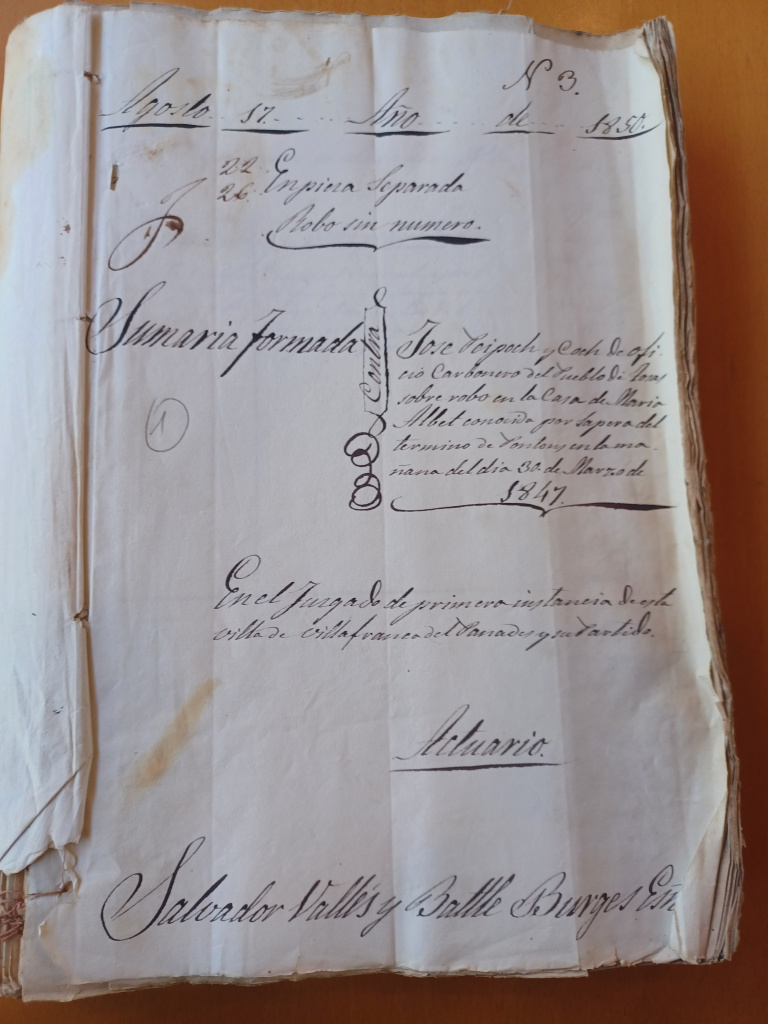 N 3.
Agosto 17. Año de 1850.
22
26. En pieza Separada
Robo sin numero.
Sumaria formada
Contra
Jose y Coch de ofi-
cio Carbonero del Pueblo de
sobre robo en la Casa de Maria
Albet conocida por Sapera del
termino de Pontons en la ma-
ñana del dia 30. de Marzo de
1847.
1
En el Jusgado de primera instancia de esta
villa de Villafranca del Panades y su Partido.
Actuario.
Salvador Vallés y Batlle Burges